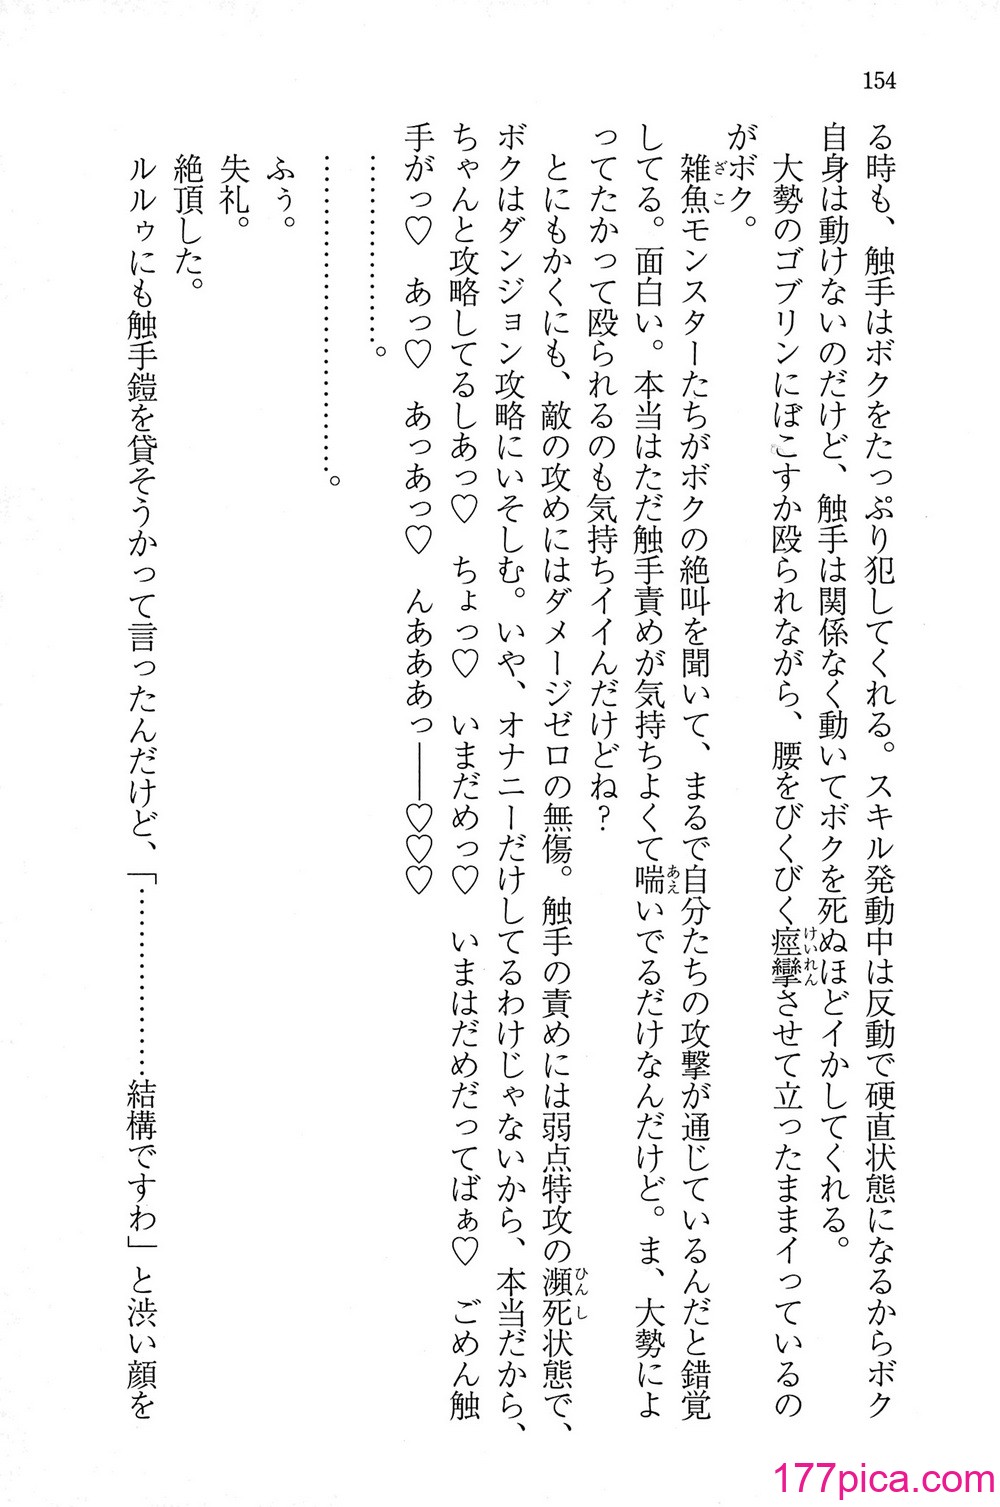 154
る時も、触手はボクをたっぷり犯してくれる。スキル発動中は反動で硬直状態になるからボク
自身は動けないのだけど、触手は関係なく動いてボクを死ぬほどイかしてくれる。
けいれん
　大勢のゴブリンにぼこすか殴られながら、腰をびくびく痙攣させて立ったままイっているの
がボク。
ざこ
　雑魚モンスターたちがボクの絶叫を聞いて、まるで自分たちの攻撃が通じているんだと錯覚
あえ
してる。面白い。本当はただ触手責めが気持ちよくて喘いでるだけなんだけど。ま、大勢によ
ってたかって殴られるのも気持ちイイんだけどね？
ひんし
　とにもかくにも、敵の攻めにはダメージゼロの無傷。触手の責めには弱点特攻の瀕死状態で、
ボクはダンジョン攻略にいそしむ。いや、オナニーだけしてるわけじゃないから、本当だから、
ちゃんと攻略してるしあっ♡　ちょっ♡　いまだめっ♡　いまはだめだってばぁ♡　ごめん触
手がっ♡　あっ♡　あっあっ♡　んあああっ――♡♡♡
　………………。
　……………………………。
　ふぅ。
　失礼。
　絶頂した。
　ルルゥにも触手鎧を貸そうかって言ったんだけど、「………………結構ですわ」と渋い顔を
177pica.com